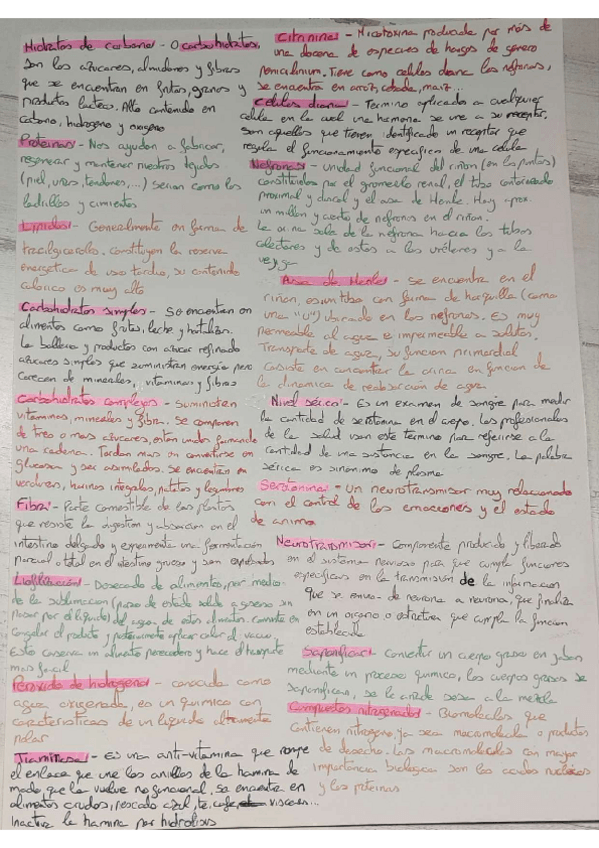 Hidratos de carbono - O carbohidratos,
Son los azúcares, almidones y fibras
que se encuentran en frutas, granos y
productos lacteos. Alto contenido en
carbono, hidrogeno y oxigeno
Proteinas - Nos ayudan a fabricar,
regenerar y mantener nuestros tejidos
(piel, uñas, tendones,...) Serian como los
ladrillos y cimientos
Lipidos - Generalmente en forma de
constituyen la reserva
energetica de uso tardio, su contenido
calorico es muy alto
Carbohidratos simples - Se encuentran en
alimentos como frutas, leche y hortalizas.
La bolleria y productos con azucar refinado
azucares simples que suministran energia pero
carecen de minerales, vitaminas y fibras
Carbohidratos complejos - Suministran
vitaminas, minerales y fibra. Se componen
de tres o mas azucares, estan unidos formando
una cadena. Tardan mas en convertirse en
glucosa y ser asimilados. Se encuentran en
verduras, harinas integrales, patatas y legumbres
Fibra - Parte comestible de las plantas
que resiste la digestion y absorcion en el
intestino delgado y experimenta una fermentacion
parcial o total en el intestino grueso y son
Liofilizacion - Desecado de alimentos, por medio
de la sublimacion (paso de estado solido a gaseoso sin
pasar por el liquido) del agua de estos alimentos. Consiste en
congelar el producto y posteriormente aplicar calor al vacio.
Esto conserva un alimento perecedero y hace el transporte
mas facil
Peroxido de hidrogeno - conocida como
agua oxigenada, es un quimico con
caracteristicas de un liquido altamente
polar
Tiaminasa - Es una anti-vitamina que rompe
el enlace que une los anillos de la tiamina de
modo que la vuelve no funcional, se encuentra en
alimentos crudos, pescado azul, te, cafe, visceras...
Inactiva la tiamina por hidrolisis
Citrinina - Micotoxina producida por más de
una docena de especies de hongos de género
penicilinium. Tiene como celulas diana las nefronas,
se encuentra en arroz, cebada, maiz...
Celulas diana - Termino aplicado a cualquier
celula en la cual una hormona se une a su receptor,
son aquellas que tienen identificado un receptor que
regula el funcionamiento especifico de una celula
Nefronas - unidad funcional del riñon (en los
constituidos por el glomerulo renal, el tubo contorneado
proximal y distal y el asa de Henle. Hay aprox.
un millon y cuarto de nefronas en el riñon.
La orina sale de la nefrona hacia los tubos
colectores y de estos a los uréteres y a la
vejiga
Asa de Henle - se encuentra en el
riñon, es un tubo con forma de horquilla (como
una "U") ubicado en los nefronas. Es muy
permeable al agua e impermeable a solutos.
Transporte de agua, su funcion primordial
consiste en concentrar la orina en funcion de
la dinamica de reabsorción de agua
Nivel sérico - Es un examen de sangre para medir
la cantidad de serotonina en el cuerpo. Los profesionales
de la salud usan este termino para referirse a la
cantidad de una sustancia en la sangre. La palabra
sérica es sinonimo de plasma
Serotonina - Un neurotransmisor muy relacionado
con el control de las emociones y el estado
de animo
Neurotransmisores - Componente producido y liberado
en el sistema nervioso para que cumpla funciones
especificas en la transmision de la informacion
que se envia de neurona a neurona, que finaliza
en un organo o estructura que cumpla la funcion
establecida
Saponificar - Convertir un cuerpo graso en jabon
mediante un proceso quimico, los cuerpos grasos se
saponifican, se le añade sosa a la mezcla
Compuestos nitrogenados - Biomoleculas que
contienen nitrogeno, ya sea macromolecula o productos
de desecho. Las macromoleculas con mayor
importancia biologica son los acidos nucleicos
y las proteinas